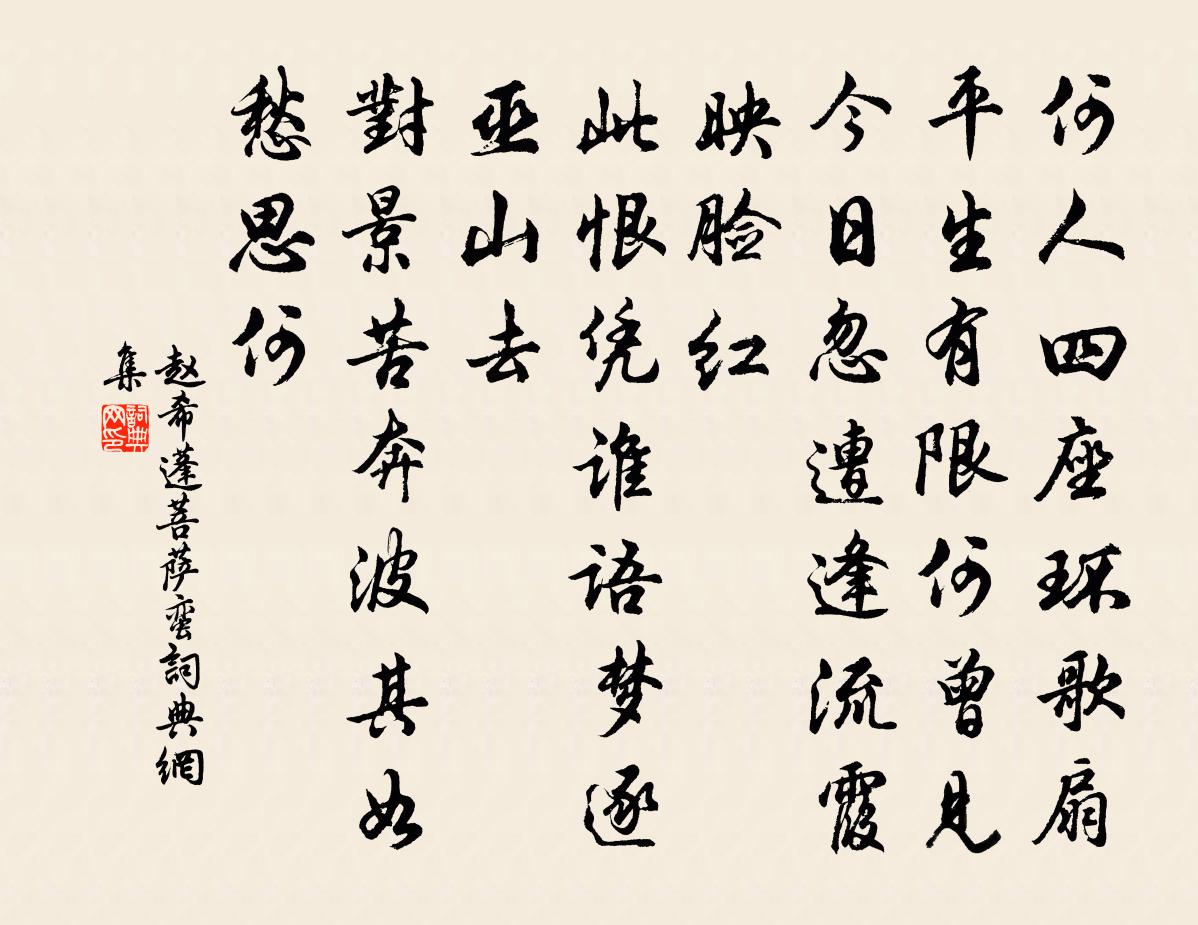 何人四座环歌扇
平生有限何曾見
今日忽遭逢流霞
映脸红
此恨凭谁语梦逐
巫山去
對景苦奔波其如
愁思何
赵希蓬菩萨蛮詞典網
集
詞典
网印